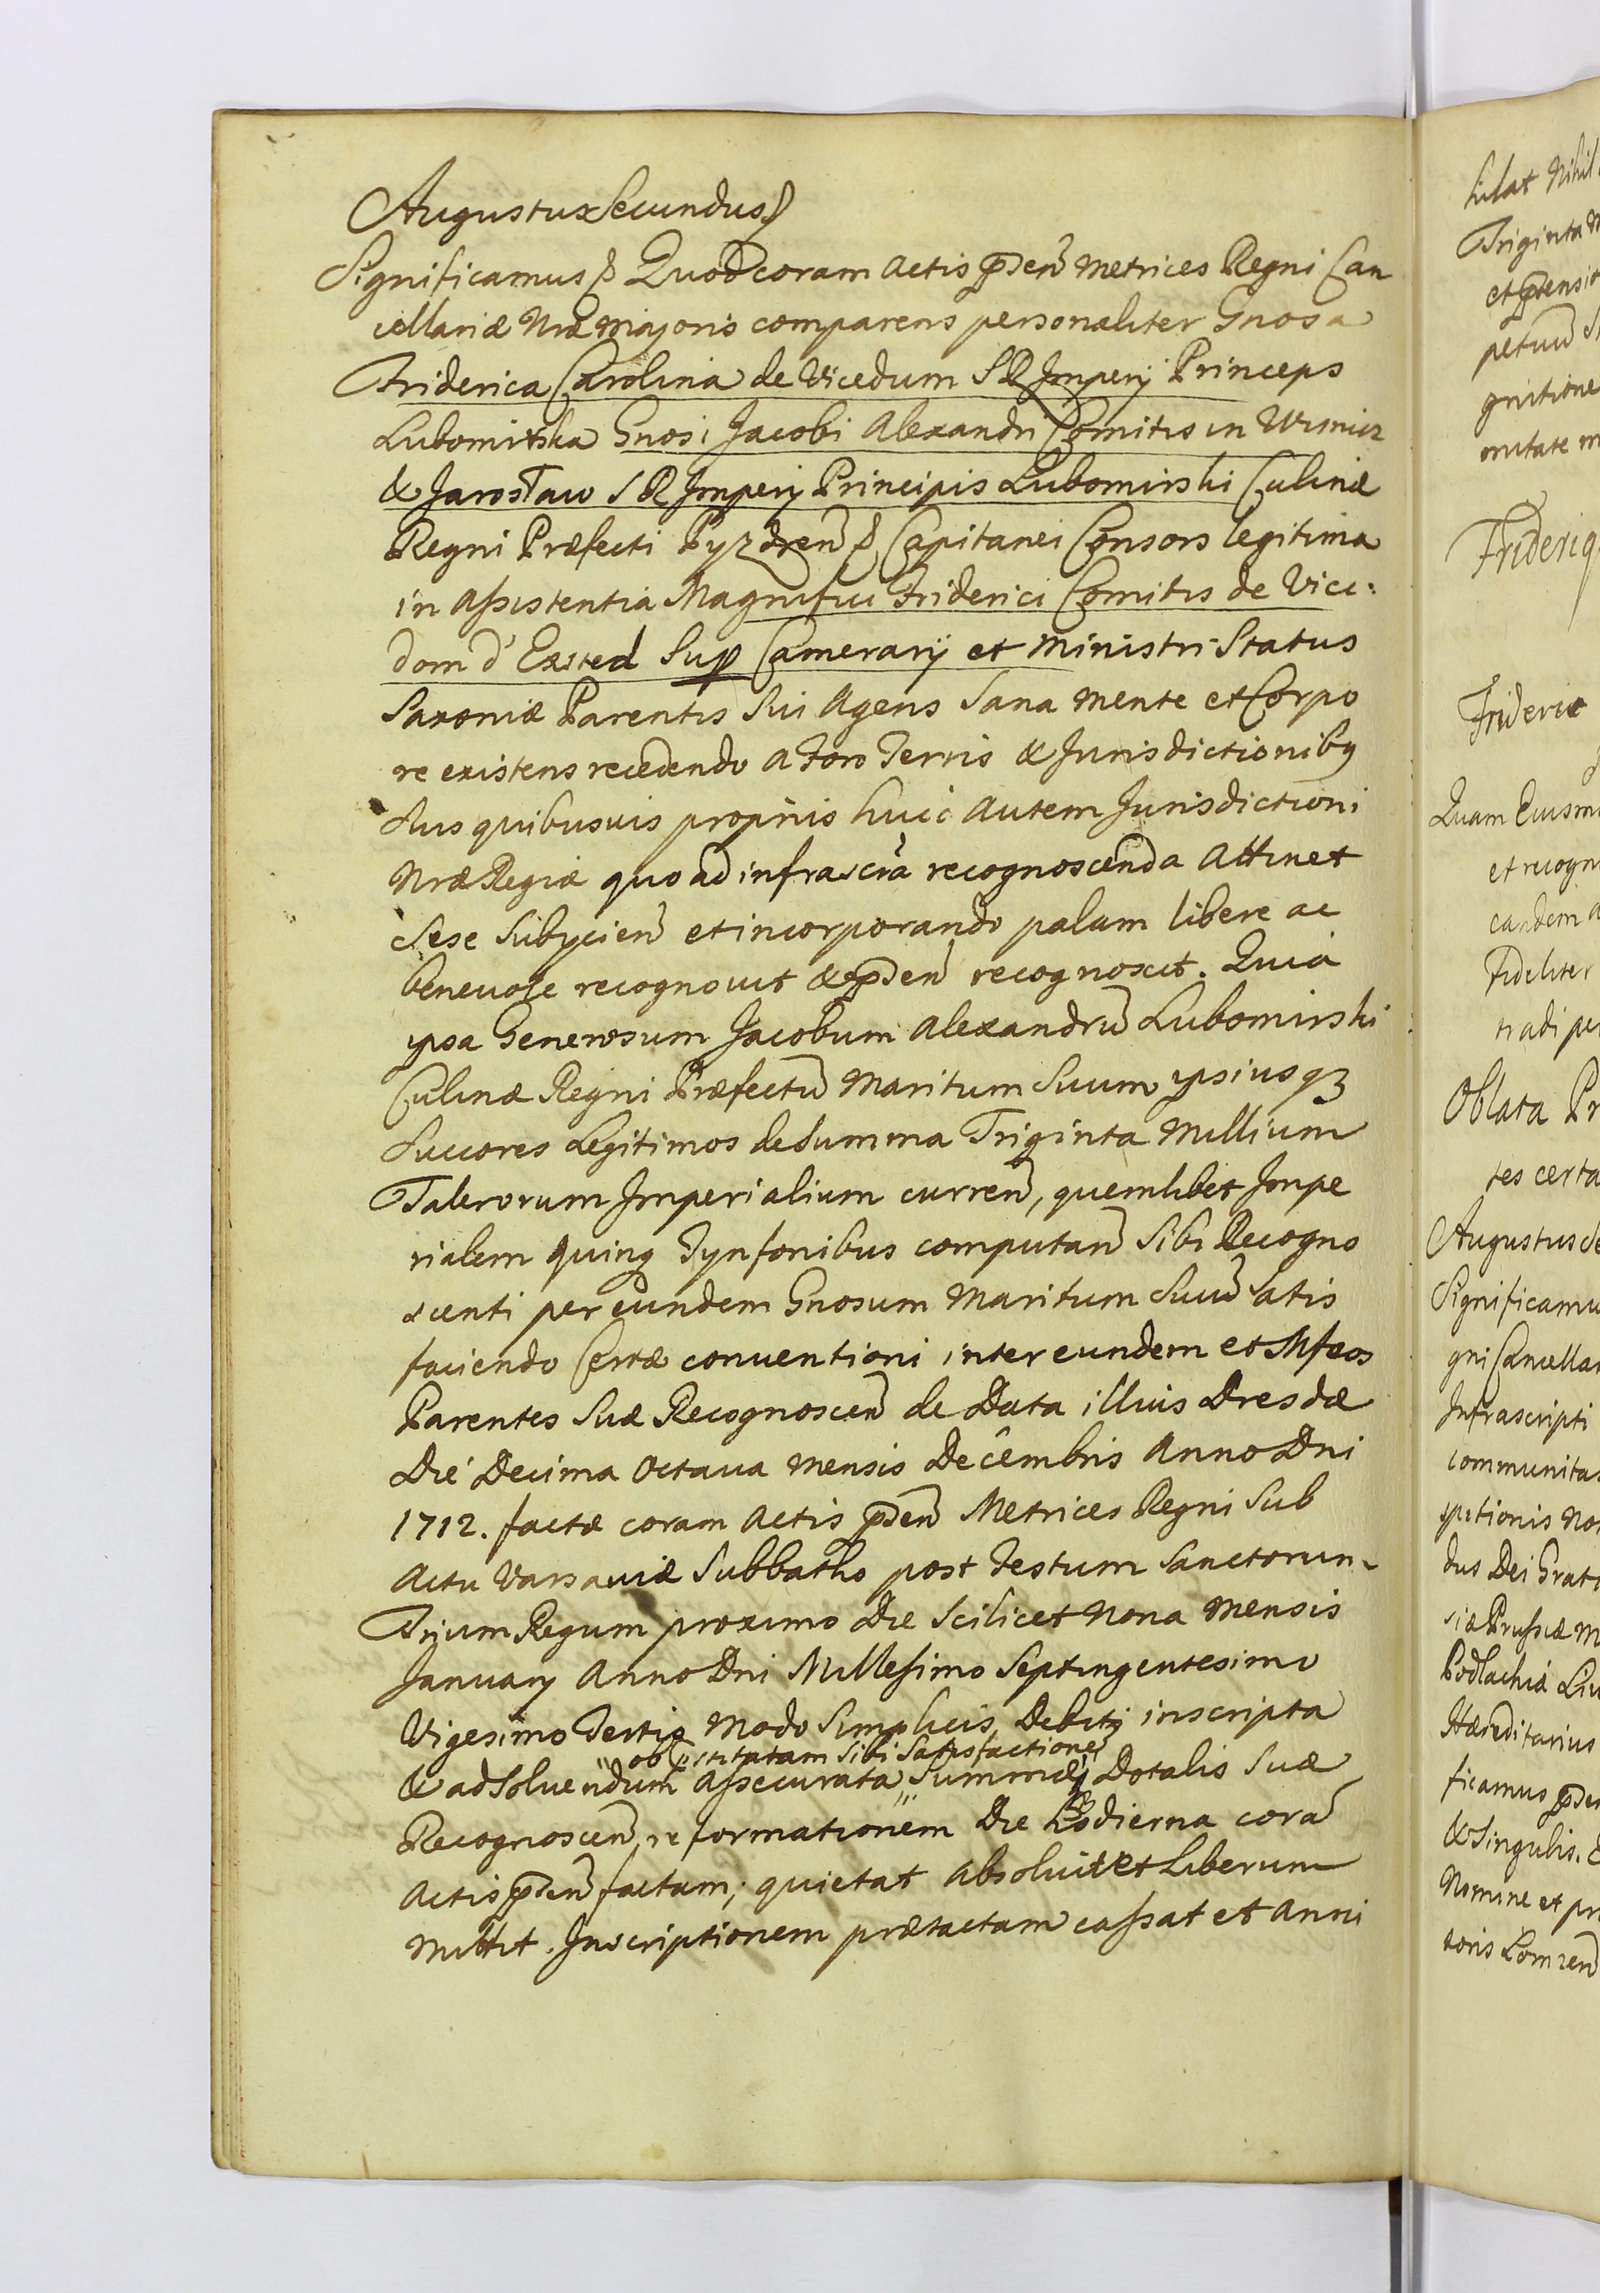 Augustus Secundus
Significamus Quod coram Actis p̃sen Metrices Regni Can
cellariæ Nræ Majoris comparens personaliter Gnosa
Friderica Carolina de Vicedum S R Imperij Princeps
Lubomirska Gnosi Jacobi Alexandri Comitis in Wisnicz
& Jarosław S R Imperij Principis Lubomirski Culinæ
Regni Præfecti Pyzdren Capitanei Consors legitima
in Assistentia Magnifici Friderici Comitis de Vice:
dom d' Exsted Sup Camerarij et Ministri Status
Saxoniæ Parentis Sui Agens Sana mente et Corpo
re existens recedendo a Foro Terris & Jurisdictionibq
Suis quibusvis proprijs huic autem Jurisdictioni
Nræ Regiæ quo ad infrascrã recognoscenda Attinet
Sese Subyicien et incorporando palam libere ac
benevole recognovit & p̃sen recognoscit. Quia
ipsa Generosum Jacobum Alexandrũ Lubomirski
Culinæ Regni Præfectũ Maritum Suum ipsius qz
Succores Legitimos de Summa Triginta Millium
Talerorum Imperialium curren, quemlibet Impe
rialem quinq Tynfonibus computan Sibi Recogno
scenti per eundem Gnosum Maritum Suũ Satis
faciendo Certæ conventioni inter eundem et Mfcos
Parentes Suæ Recognoscen de Data illius Dresdæ
Die Decima Octava Mensis Decembris Anno Dni
1712. factæ coram Actis p̃sen Metrices Regni Sub
Actu Varsaviæ Sabbatho post Festum Sanctorum
Trium Regum proximo Die Scilicet Nona Mensis
January Anno Dni Millesimo Septingentesimo
Vigesimo Tertio Modo Simplicis Debiti inscripta
ob Sibi Satisfactionem
& ad Solvendum Assecurata Summæ Dotalis Suæ
Recognoscen reformationem Die hodierna corã
Actis p̃sen factam; quietat absolvit et Liberum
mittit. Inscriptionem prætactam cassat et anni
hilat Nihil
Triginta
petuũ
gnitione
Frideric
et recogn
Fideliter
Oblata Pr
tes certa
Augustus Se
Significamu
gni Cancellar
Infrascripti
communitat
dus Dei Grat
siæ Prussiæ M
Podlachiæ
Hæreditarius
ficamus
& Singulis.
Nomine et pr